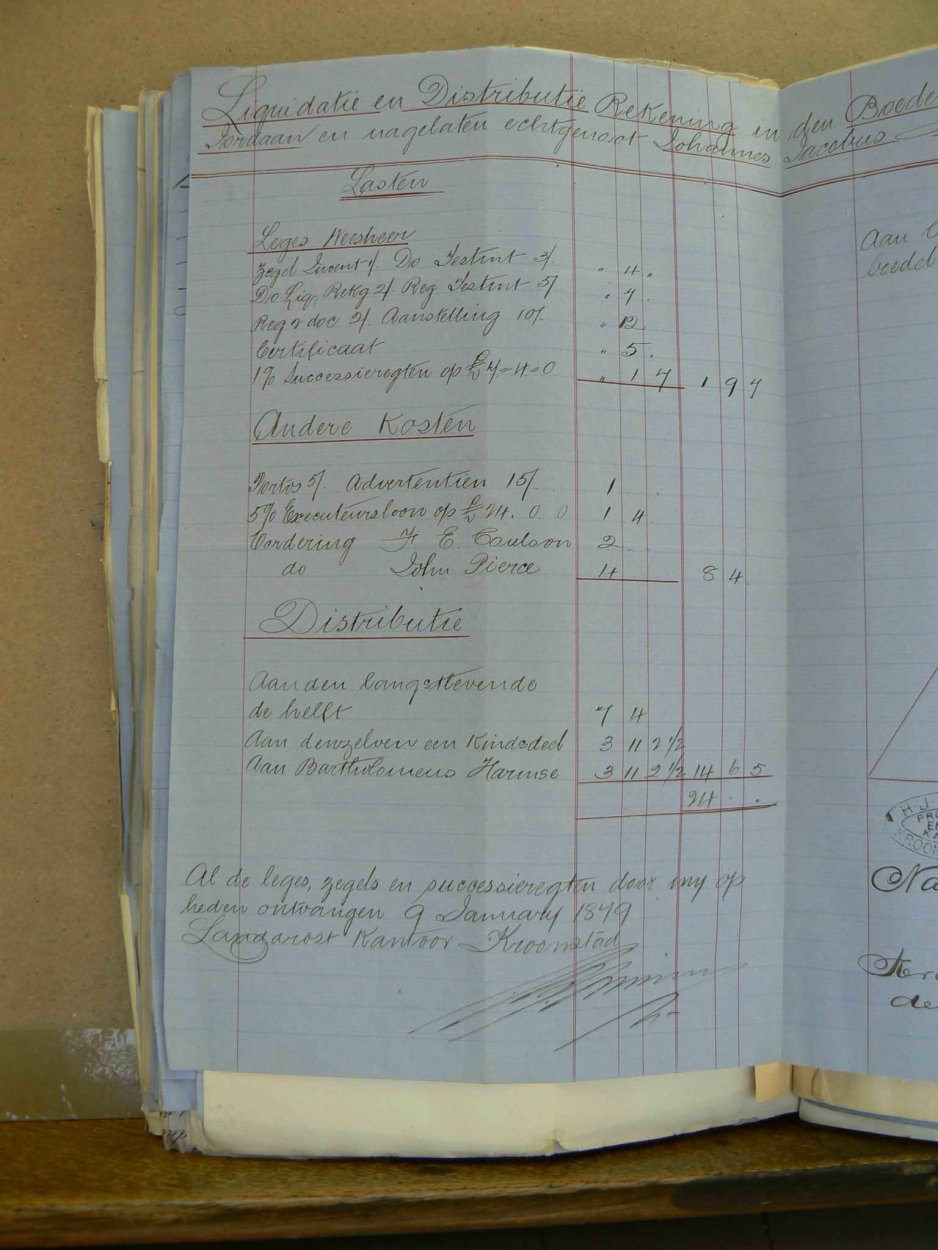 Liquidatie en Distributie Rekening in den Boede
Jordaan en nagelaten echtgenoot Johannes Jacobus
Lasten
Leges Weesheer
Zegel Invent 1/ Do Testmt 3/ " 4 "
Do Liq, Rekg 2/ Reg Testmt 5/ " 7 .
Reg 2 doc 2/ Aanstelling 10/. " 12
Certificaat " 5 .
1% Successieregten op £ 7=4=0 " 1 7 1 9 7
Andere Kosten
Portos 5/. Advertentien 15/. 1 . .
5% Executeursloon op £ 24. 0 0 1 4 .
Vordering E Coulson 2 . .
do John Pierce 4 . . 8 4 .
Distributie
Aan den langstlevende
de helft 7 4
Aan denzelven een Kindsdeel 3 11 2½
Aan Bartholomeus Harmse 3 11 2½ 14 6 5
24 . .
Al de leges, zegels en successieregten door my op
heden ontvangen 9 January 1879
Landdrost Kantoor Kroonstad
Aan
boedel
H. J.
PRO
EN
KROON
Na
de